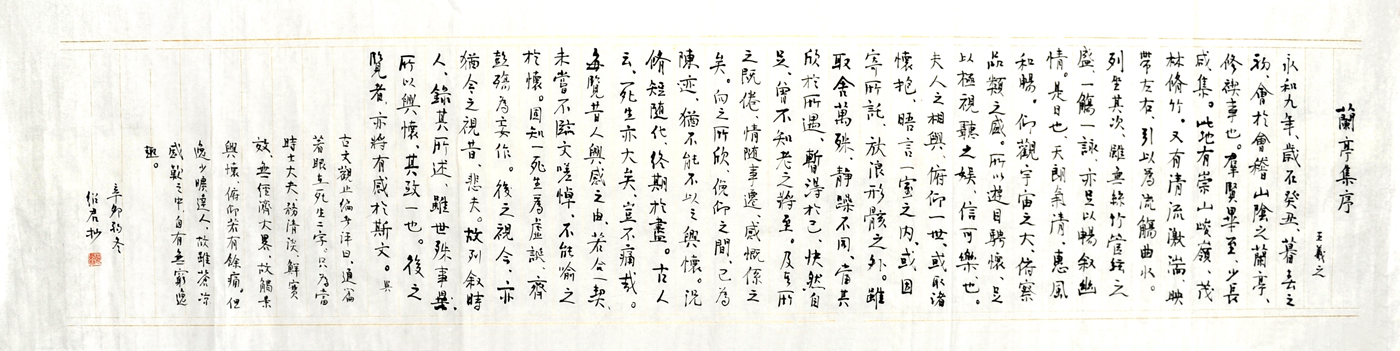 蘭亭集序
王羲之
永和九年、歲在癸丑、暮春之
初、會於會稽山陰之蘭亭、
修禊事也。羣賢畢至、少長
咸集。此地有崇山峻嶺、茂
林脩竹。又有清流激湍、映
帶左右、引以為流觴曲水。
列坐其次、雖無絲竹管絃之
盛、一觴一詠、亦足以暢敘幽
情。是日也、天朗氣清、惠風
和暢。仰觀宇宙之大、俯察
品類之盛。所以遊目騁懷、足
以極視聽之娛、信可樂也。
夫人之相與、俯仰一世、或取諸
懷抱、晤言一室之内、或因
寄所託、放浪形骸之外。雖
取舍萬殊、靜躁不同、當其
欣於所遇、暫得於己、快然自
足、曾不知老之將至。及其所
之既倦、情隨事遷、感慨係之
矣。向之所欣、俛仰之間、已為
陳迹、猶不能不以之興懷。況
脩短隨化、終期於盡。古人
云、死生亦大矣、豈不痛哉。
每覽昔人興感之由、若合一契、
未嘗不臨文嗟悼、不能喻之
於懷。固知一死生為虛誕、齊
彭殤為妄作。後之視今、亦
猶今之視昔、悲夫。故列敘時
人、錄其所述、雖世殊事異、
所以興懷、其致一也。後之
覽者、亦將有感於斯文。
古文觀止編者評曰、通篇
著眼在死生二字、只為當
時士大夫務清談、鮮實
效、無經濟大畧、故觸景
興懷、俯仰若有餘痛。但
逸少曠達人、故雖蒼涼
感歎之中、自有無窮逸
趣。
辛卯初冬